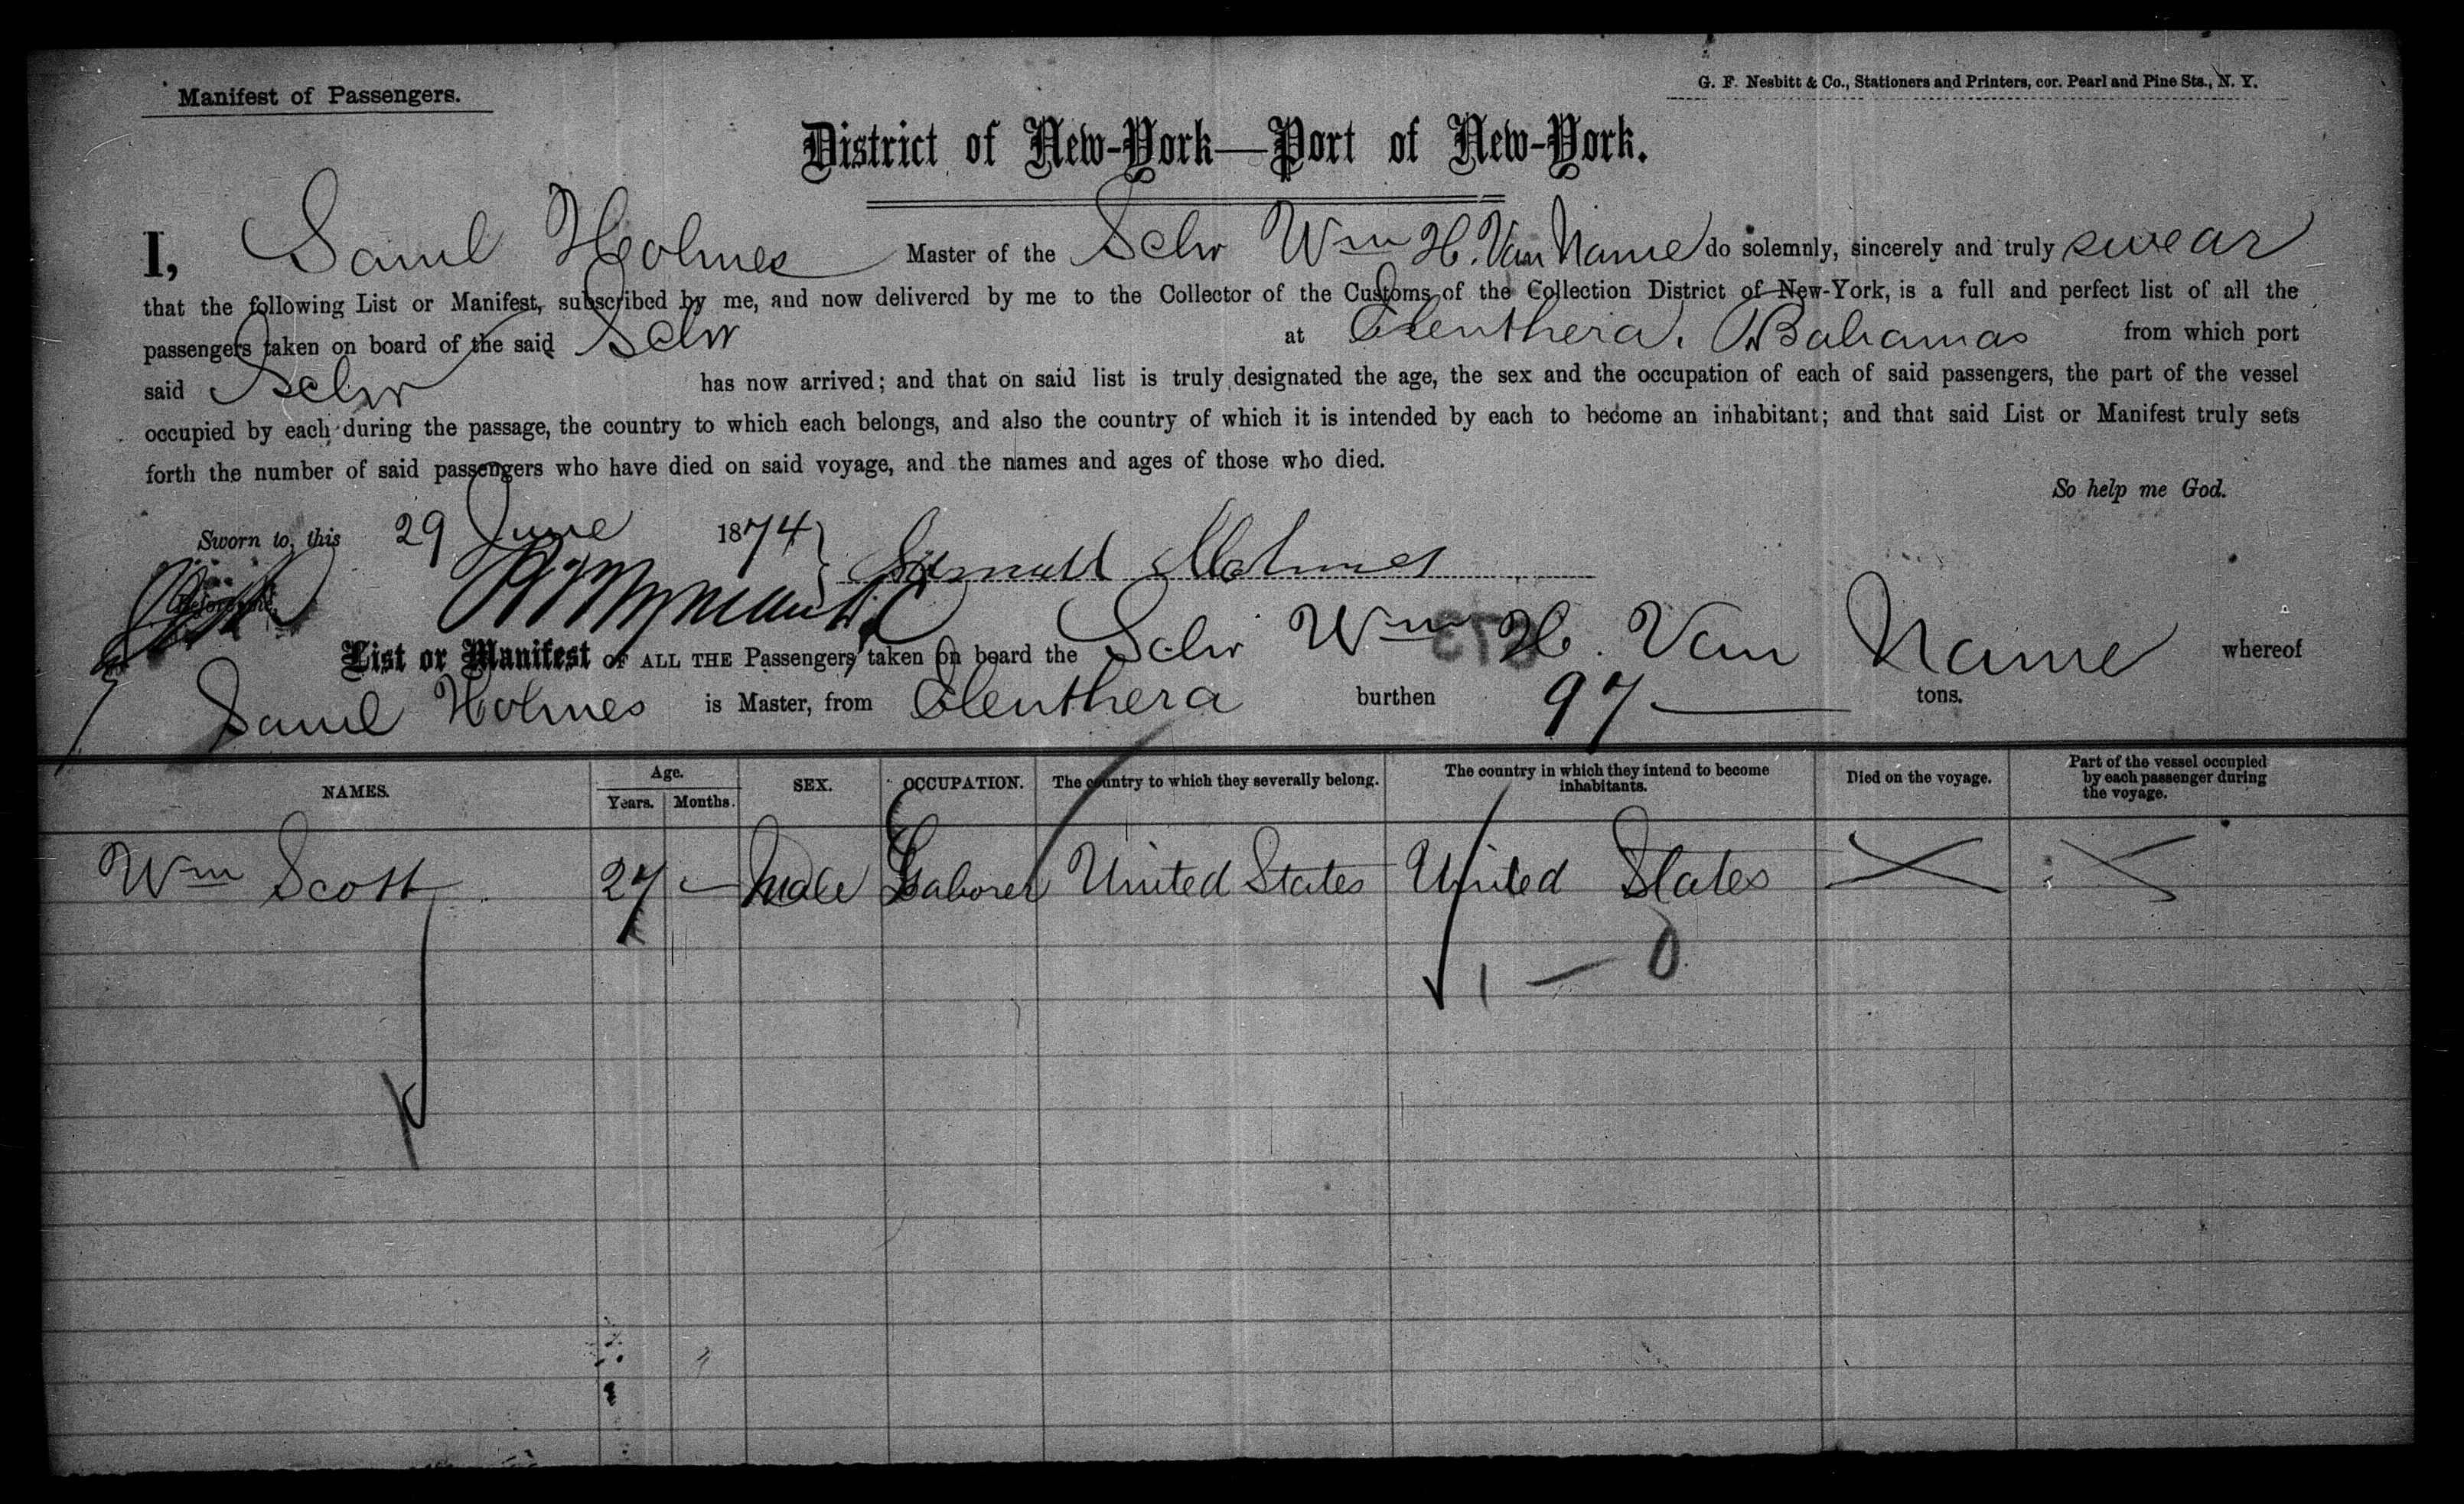 Manifest of Passengers.
G. F. Nesbitt & Co., Stationers and Printers, cor. Pearl and Pine Sts., N. Y.
District of New-York—Port of New-York.
I, Saml Holmes Master of the Schr Wm H. Van Name do solemnly, sincerely and truly swear
that the following List or Manifest, subscribed by me, and now delivered by me to the Collector of the Customs of the Collection District of New-York, is a full and perfect list of all the
passengers taken on board of the said Schr at Eleuthera, Bahamas from which port
said Schr has now arrived; and that on said list is truly designated the age, the sex and the occupation of each of said passengers, the part of the vessel
occupied by each during the passage, the country to which each belongs, and also the country of which it is intended by each to become an inhabitant; and that said List or Manifest truly sets
forth the number of said passengers who have died on said voyage, and the names and ages of those who died.
So help me God.
Sworn to, this 29 June 1874
Samuell Holmes
Before me,
List or Manifest OF ALL THE Passengers taken on board the Schr Wm H. Van Name whereof
Saml Holmes is Master, from Eleuthera burthen 97 tons.
NAMES. Age. Years. Months. SEX. OCCUPATION. The country to which they severally belong. The country in which they intend to become inhabitants. Died on the voyage. Part of the vessel occupied by each passenger during the voyage.
Wm Scott 27 — Male Laborer United States United States
1 — 0